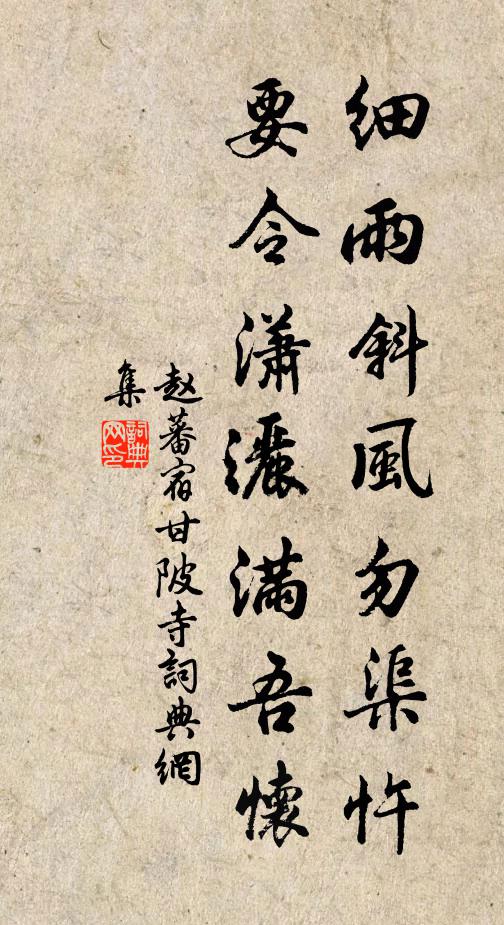 細雨斜風勿渠忤
要令瀟灑滿吾懷
赵蕃宿甘陂寺詞典網
集
詞典
网印